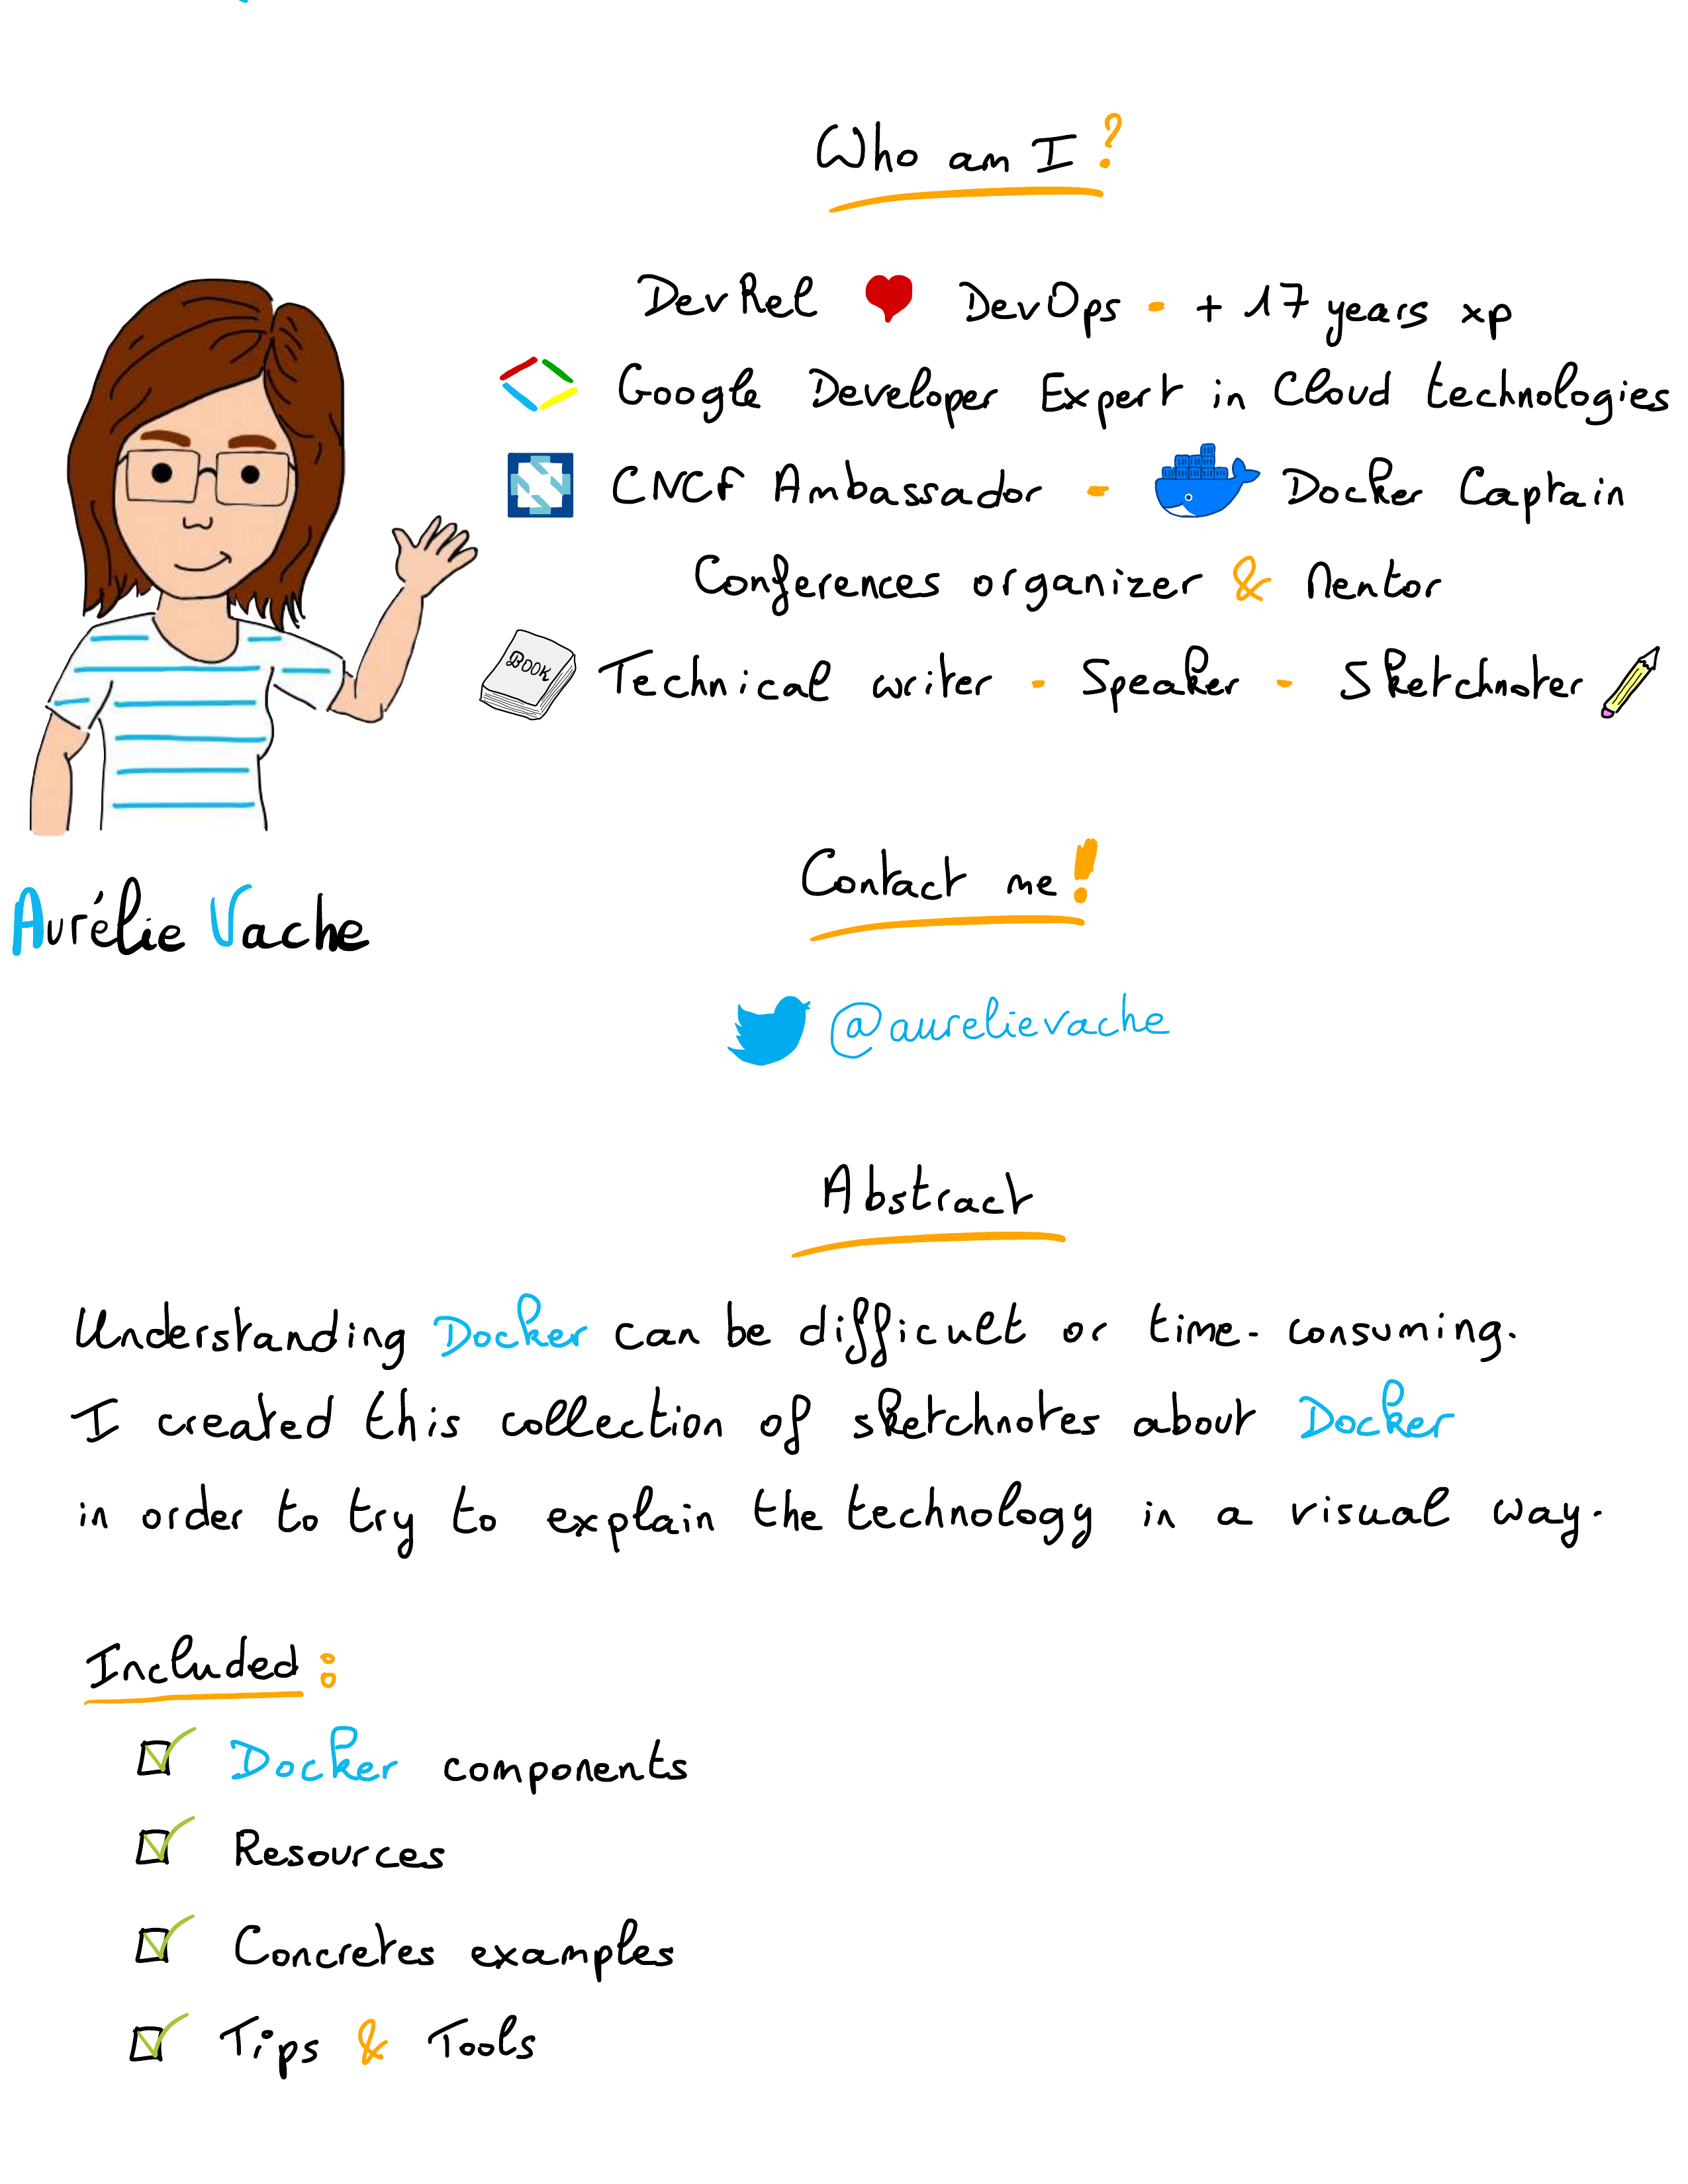 Who am I ?
DevRel ❤ DevOps - + 17 years xp
Google Developer Expert in Cloud technologies
CNCF Ambassador - Docker Captain
Conferences organizer & Mentor
BOOK
Technical writer - Speaker - Sketchnoter
Aurélie Vache
Contact me !
@aurelievache
Abstract
Understanding Docker can be difficult or time-consuming.
I created this collection of sketchnotes about Docker
in order to try to explain the technology in a visual way.
Included :
Docker components
Resources
Concretes examples
Tips & Tools